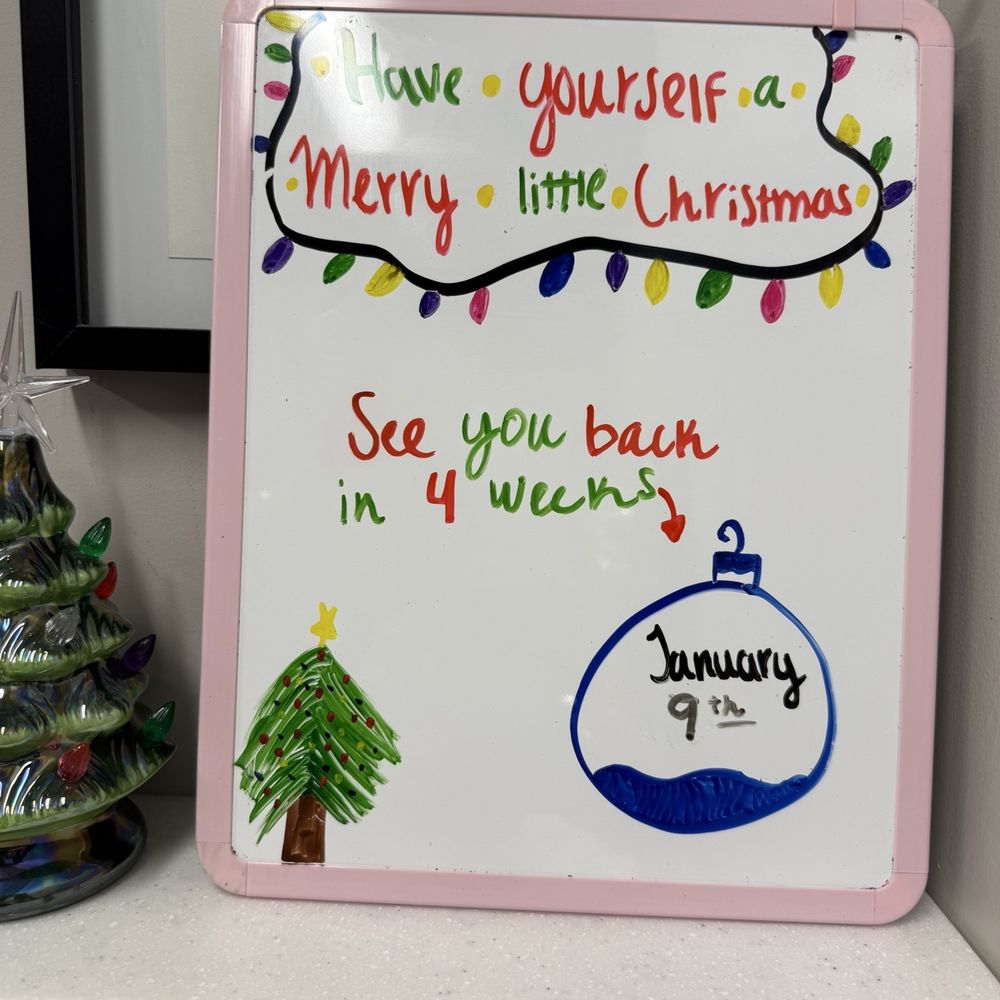 Have yourself a
Merry little Christmas
See you back
in 4 weeks
January
9th